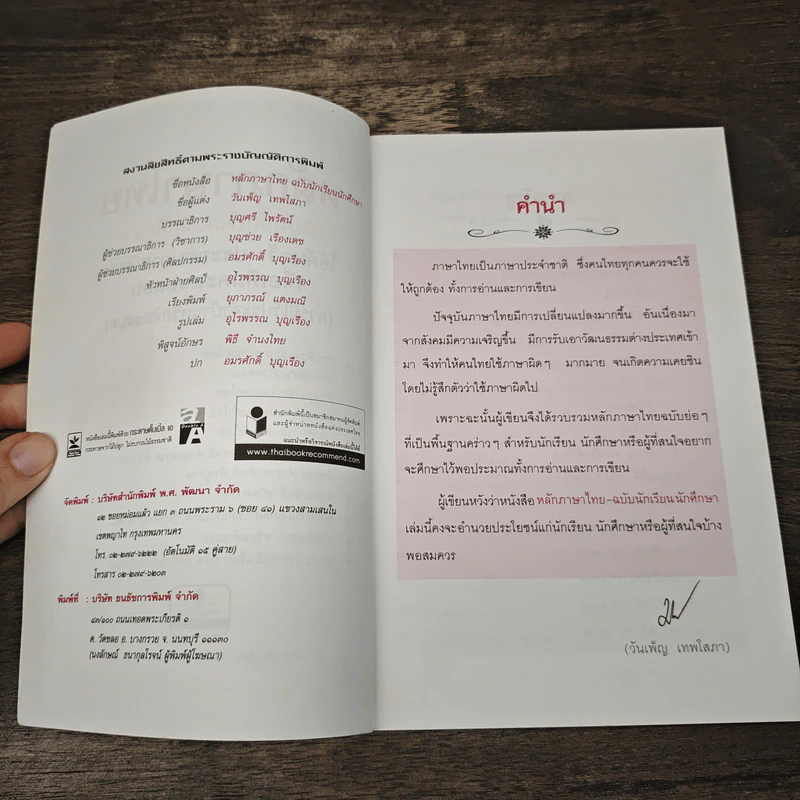 สงวนลิขสิทธิ์ตามพระราชบัญญัติการพิมพ์
ชื่อหนังสือ หลักภาษาไทย ฉบับนักเรียนนักศึกษา
ชื่อผู้แต่ง วันเพ็ญ เทพโสภา
บรรณาธิการ บุญศรี ไพรัตน์
ผู้ช่วยบรรณาธิการ (วิชาการ) บุญช่วย เรืองเดช
ผู้ช่วยบรรณาธิการ (ศิลปกรรม) อมรศักดิ์ บุญเรือง
หัวหน้าฝ่ายศิลป์ อุไรพรรณ บุญเรือง
เรียงพิมพ์ ยุภาภรณ์ แดงมณี
รูปเล่ม อุไรพรรณ บุญเรือง
พิสูจน์อักษร พิธี จำนงไทย
ปก อมรศักดิ์ บุญเรือง
หนังสือเล่มนี้พิมพ์ด้วย กระดาษดั๊บเบิ้ล เอ
กระดาษจากไม้ปลูก ไม่รบกวนไม้ธรรมชาติ
Double A
สำนักพิมพ์นี้เป็นสมาชิกสมาคมผู้จัดพิมพ์
และผู้จำหน่ายหนังสือแห่งประเทศไทย
แนะนำหรือวิจารณ์หนังสือเล่มนี้ได้ที่
www.thaibookrecommend.com
จัดพิมพ์ : บริษัทสำนักพิมพ์ พ.ศ. พัฒนา จำกัด
๑๒ ซอยหม่อมแผ้ว แยก ๓ ถนนพระราม ๖ (ซอย ๔๑) แขวงสามเสนใน
เขตพญาไท กรุงเทพมหานคร
โทร. ๐๒-๒๗๙-๖๒๒๒ (อัตโนมัติ ๑๕ คู่สาย)
โทรสาร ๐๒-๒๗๙-๖๒๐๓
พิมพ์ที่ : บริษัท ธนธัชการพิมพ์ จำกัด
๔๘/๑๐๐ ถนนเทอดพระเกียรติ ๑
ต. วัดชลอ อ. บางกรวย จ. นนทบุรี ๑๑๑๓๐
(นงลักษณ์ ธนากุลโรจน์ ผู้พิมพ์ผู้โฆษณา)
คำนำ
ภาษาไทยเป็นภาษาประจำชาติ ซึ่งคนไทยทุกคนควรจะใช้
ให้ถูกต้อง ทั้งการอ่านและการเขียน
ปัจจุบันภาษาไทยมีการเปลี่ยนแปลงมากขึ้น อันเนื่องมา
จากสังคมมีความเจริญขึ้น มีการรับเอาวัฒนธรรมต่างประเทศเข้า
มา จึงทำให้คนไทยใช้ภาษาผิดๆ มากมาย จนเกิดความเคยชิน
โดยไม่รู้สึกตัวว่าใช้ภาษาผิดไป
เพราะฉะนั้นผู้เขียนจึงได้รวบรวมหลักภาษาไทยฉบับย่อๆ
ที่เป็นพื้นฐานคร่าวๆ สำหรับนักเรียน นักศึกษาหรือผู้ที่สนใจอยาก
จะศึกษาไว้พอประมาณทั้งการอ่านและการเขียน
ผู้เขียนหวังว่าหนังสือ หลักภาษาไทย-ฉบับนักเรียน นักศึกษา
เล่มนี้คงจะอำนวยประโยชน์แก่นักเรียน นักศึกษาหรือผู้ที่สนใจบ้าง
พอสมควร
(วันเพ็ญ เทพโสภา)